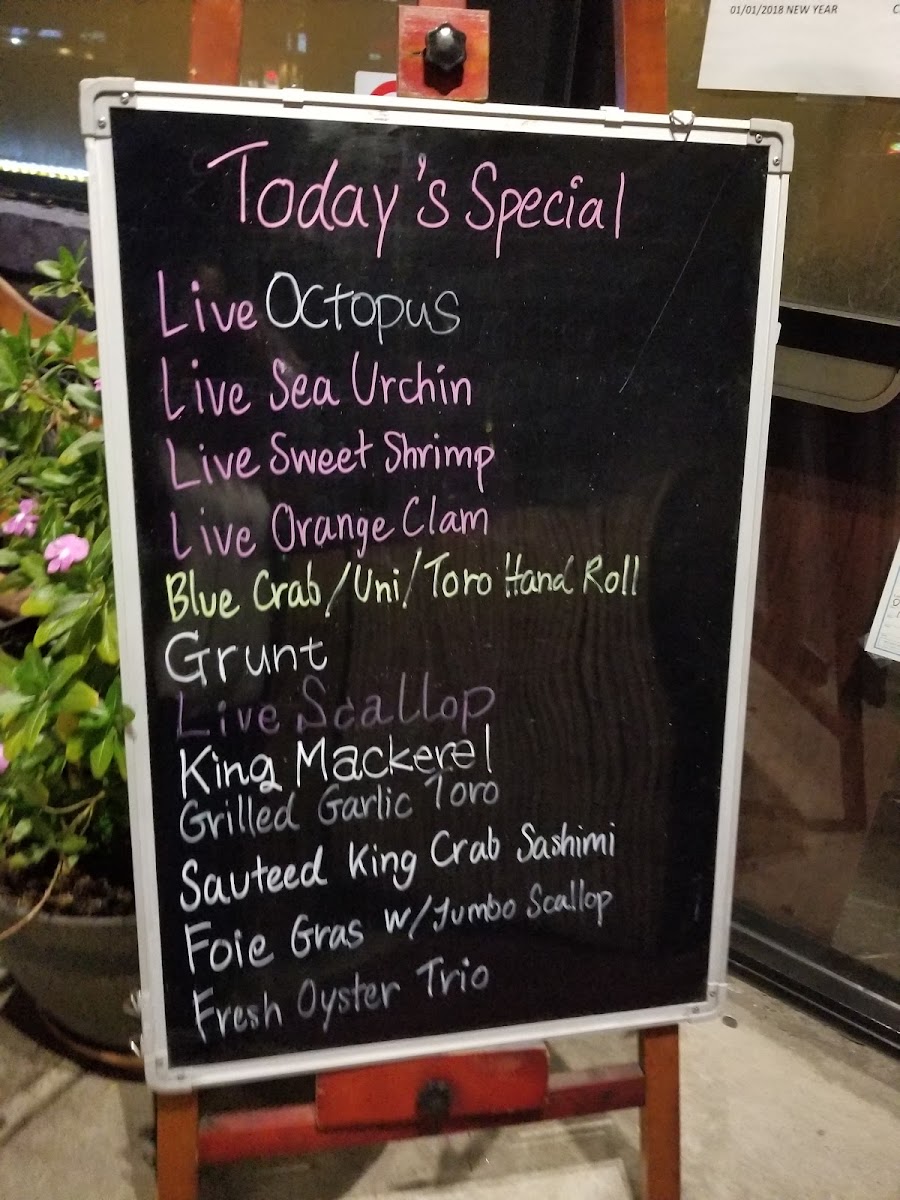 01/01/2018 NEW YEAR
Today's Special
Live Octopus
Live Sea Urchin
Live Sweet Shrimp
Live Orange Clam
Blue Crab/Uni/Toro Hand Roll
Grunt
Live Scallop
King Mackerel
Grilled Garlic Toro
Sauteed King Crab Sashimi
Foie Gras w/Jumbo Scallop
Fresh Oyster Trio